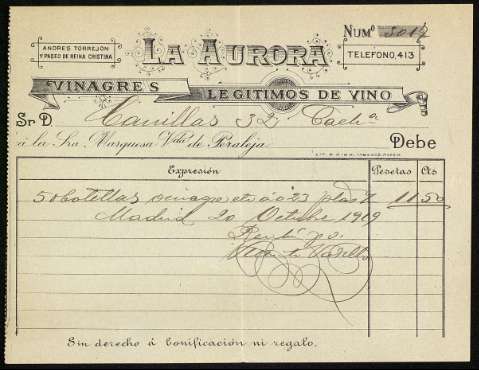 ANDRES TORREJON
Y PASEO DE REINA CRISTINA
LA AURORA
NUMº
TELEFONO, 413
VINAGRES LEGITIMOS DE VINO
Sr D. Canillas 32
á la Sra. Marquesa Vda. de Peraleja Debe
Expresión Pesetas Cts
50 botellas vinagre á 0 23 11 50
Madrid 20 Octubre 1919
Recibí
Sin derecho á bonificación ni regalo.